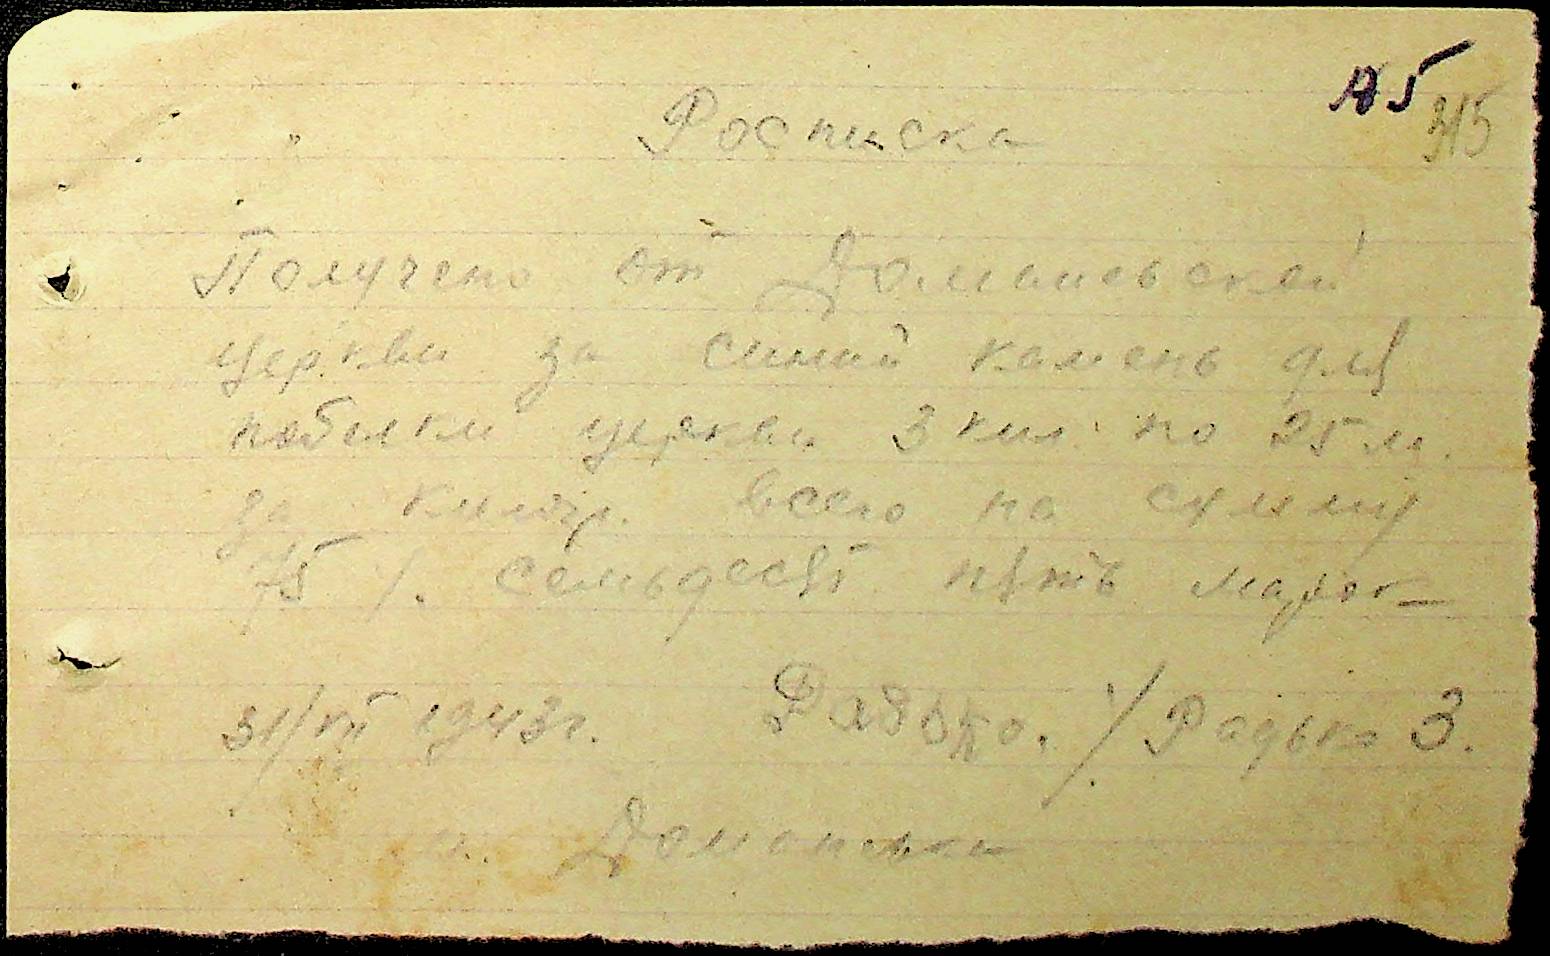 А5
315
Росписка
Получено от Доманевской
церкви за синий камень для
побелки церкви 3 кил. по 25 м.
за килогр. всего на сумму
75 /. семьдесят пять марок
31/VII 1943 г. Радько. / Радько З.
Доманевка